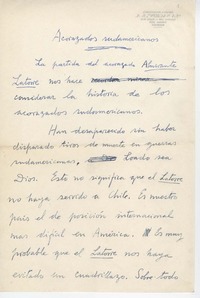 Acorazados sudamericanos
La partida del acorazado Almirante
Latorre nos hace
considerar la historia de los
acorazados sudamericanos.
Han desaparecido sin haber
disparado tiros de muerte en guerras
sudamericanas. Loado sea
Dios. Esto no significa que el Latorre
no haya servido a Chile. Es nuestro
país el de posición internacional
mas difícil en América. Es muy
probable que el Latorre nos haya
evitado un cuadrillazo. Sobre todo